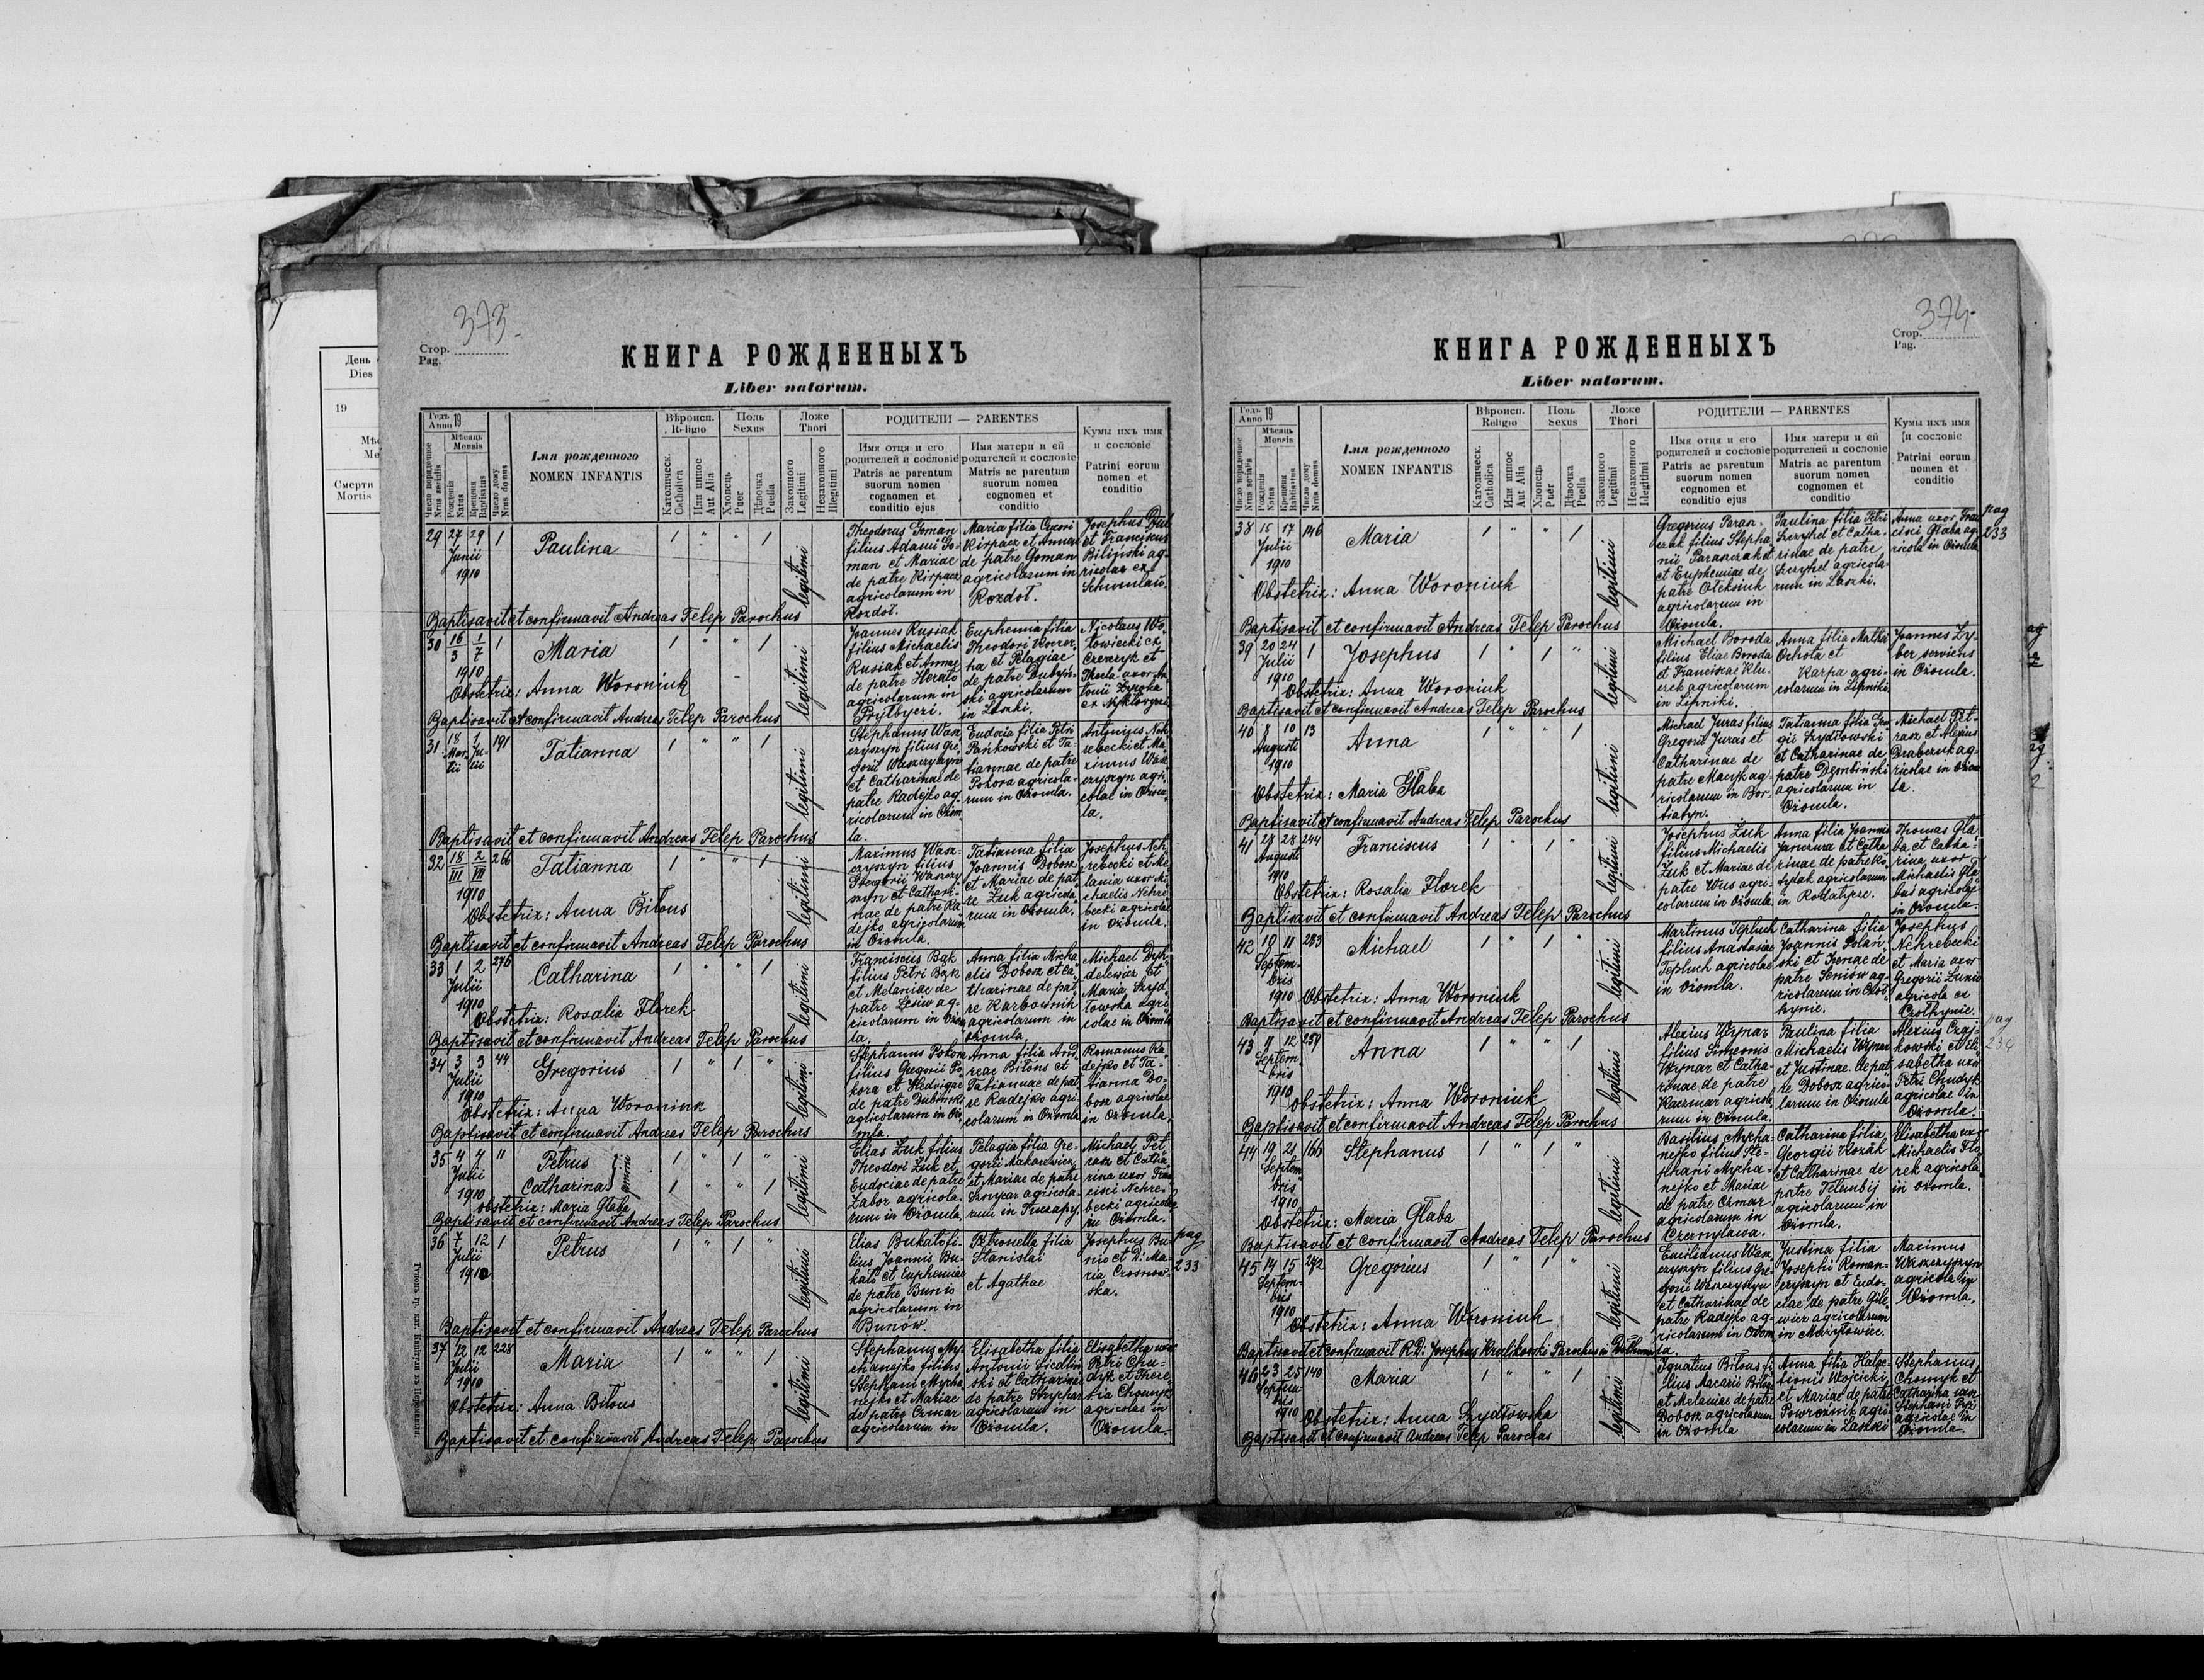 День
Dies
19
Смерти
Mortis
373.
Стор.
Pag.
КНИГА РОЖДЕННЫХЪ
Liber natorum.
Годъ 19
Anno
Мѣсяць
Mensis
Число порядочное
Nrus serialis
Рожденія
Natus
Крещенія
Baptisatus
Число дому
Nrus domus
Імя рожденного
NOMEN INFANTIS
Вѣроисп.
Religio
Католическ.
Catholica
Или инное
Aut Alia
Поль
Sexus
Хлопець
Puer
Дѣвочка
Puella
Ложе
Thori
Законного
Legitimi
Незаконного
Illegitimi
РОДИТЕЛИ — PARENTES
Имя отця и его
родителей и сословіе
Patris ac parentum
suorum nomen
cognomen et
conditio ejus
Имя матери и ей
родителей и сословіе
Matris ac parentum
suorum nomen
cognomen et
conditio
Кумы ихъ имя
и сословіе
Patrini eorum
nomen et
conditio
29 27 29 1 Paulina 1 " " 1 legitimi
Junii
1910
Theodorus Goman
filius Adami Go-
man et Mariae
de patre Kirpacz
agricolarum in
Rozdoł.
Maria filia
Kirpacz et Annae
de patre Goman
agricolarum in
Rozdoł.
Josephus
et Franciscus
Biliński ag-
ricolae ex
Baptisavit et confirmavit Andreas Telep Parochus
30 16/3 1/7 1 Maria 1 " " 1 legitimi
1910
Obstetrix: Anna Woroniuk
Joannes Rusiak
filius Michaelis
Rusiak et Annae
de patre Herało
agricolarum in
Euphemia filia
Theodori
et Pelagiae
de patre Dubyń-
ski agricolarum
in
Nicolaus
et
Thecla uxor
Baptisavit et confirmavit Andreas Telep Parochus
31 18 1 191 Tatianna 1 " " 1 legitimi
Mar- Ju-
tii lii
Stephanus Wasz-
czyszyn filius Gre-
gorii Waszczyszyn
et Catharinae de
patre Radejko ag-
ricolarum in Ożom-
la.
Eudocia filia Petri
Pańkowski et Ta-
tiannae de patre
Pokora agricola-
rum in Ożomla.
Antonius Neh-
rebecki et Ma-
ximus Wasz-
czyszyn agri-
colae in Ożom-
la.
Baptisavit et confirmavit Andreas Telep Parochus
32 18/III 2/VII 266 Tatianna 1 " " 1 legitimi
1910
Obstetrix: Anna Biłous
Maximus Wasz-
czyszyn filius
Gregorii Waszczy-
szyn et Cathari-
nae de patre Ra-
dejko agricolarum
in Ożomla.
Tatianna filia
Joannis Dobosz
et Mariae de pat-
re Żuk agricola-
rum in Ożomla.
Josephus Neh-
rebecki et Me-
lania uxor Mi-
chaelis Nehre-
becki agricolae
in Ożomla.
Baptisavit et confirmavit Andreas Telep Parochus
33 1 2 276 Catharina 1 " " 1 legitimi
Julii
1910
Obstetrix: Rosalia Florek
Franciscus Bąk
filius Petri Bąk
et Melaniae de
patre Lesiw ag-
ricolarum in Ożom-
la.
Anna filia Micha-
elis Dobosz et Ca-
tharinae de pat-
re Karbownik
agricolarum in
Ożomla.
Michael
et
Maria Szyd-
łowska agri-
colae in Ożomla
Baptisavit et confirmavit Andreas Telep Parochus
34 3 3 44 Gregorius 1 " 1 " legitimi
Julii
1910
Obstetrix: Anna Woroniuk
Stephanus Pokora
filius Gregorii Po-
kora et Hedvigae
de patre Dubiński
agricolarum in Oż-
omla.
Anna filia And-
reae Biłous et
Tatiannae de pat-
re Radejko agri-
colarum in Ożomla
Romanus Ra-
dejko et Ta-
tianna Do-
bosz agricolae
in Ożomla.
Baptisavit et confirmavit Andreas Telep Parochus
35 4 4 " Petrus 1 " 1 " legitimi
Julii
1910 Catharina gemini 1 " " 1
Obstetrix: Maria Głaba
Elias Żuk filius
Theodori Żuk et
Eudociae de patre
Zabor agricola-
rum in Ożomla.
Pelagia filia Gre-
gorii Makarewicz
et Mariae de patre
agricola-
rum in
Michael Pet-
rasz et Catha-
rina uxor Fran-
cisci Nehre-
becki agricolae
in Ożomla.
Baptisavit et confirmavit Andreas Telep Parochus
36 7 12 1 Petrus 1 " 1 " legitimi
Julii
1910
Elias Bukało fi-
lius Joannis Bu-
kało et Euphemiae
de patre Bunio
agricolarum in
Bunów.
Petronella filia
Stanislai
et Agathae
Josephus Bu-
nio et D. Ma-
ria Czosnow-
ska.
pag
233
Baptisavit et confirmavit Andreas Telep Parochus
37 12 12 228 Maria 1 " " 1 legitimi
Julii
1910
Obstetrix: Anna Biłous
Stephanus My-
chanejko filius
Stephani Mycha-
nejko et Mariae
de patre Czmar
agricolarum in
Elisabetha filia
Antonii Siedliń-
ski et Catharinae
de patre Strychar
agricolarum in
Ożomla.
Elisabetha uxor
Petri Chu-
dyk et There-
sia Chomyk
agricolae in
Ożomla.
Baptisavit et confirmavit Andreas Telep Parochus
374.
Стор.
Pag.
КНИГА РОЖДЕННЫХЪ
Liber natorum.
Годъ 19
Anno
Мѣсяць
Mensis
Число порядочное
Nrus serialis
Рожденія
Natus
Крещенія
Baptisatus
Число дому
Nrus domus
Імя рожденного
NOMEN INFANTIS
Вѣроисп.
Religio
Католическ.
Catholica
Или инное
Aut Alia
Поль
Sexus
Хлопець
Puer
Дѣвочка
Puella
Ложе
Thori
Законного
Legitimi
Незаконного
Illegitimi
РОДИТЕЛИ — PARENTES
Имя отця и его
родителей и сословіе
Patris ac parentum
suorum nomen
cognomen et
conditio ejus
Имя матери и ей
родителей и сословіе
Matris ac parentum
suorum nomen
cognomen et
conditio
Кумы ихъ имя
и сословіе
Patrini eorum
nomen et
conditio
38 15 17 146 Maria 1 " " 1 legitimi
Julii
1910
Obstetrix: Anna Woroniuk
Gregorius Paran-
czak filius Stepha-
nii Paranczak et
et Euphemiae de
patre Oleksiuk
agricolarum in
Ożomla.
Paulina filia Petri
et Catha-
rinae de patre
agricola-
rum in Laszki.
Anna uxor Fran-
cisci Głaba ag-
ricola in Ożomla
pag
233
Baptisavit et confirmavit Andreas Telep Parochus
39 20 24 1 Josephus 1 " 1 " legitimi
Julii
1910
Obstetrix: Anna Woroniuk
Michael Boroda
filius Eliae Boroda
et Franciscae Klu-
czek agricolarum
in Lipniki.
Anna filia Mathia
Ochota et
Karpa agri-
colarum in Lipniki
Joannes Zy-
ber serviens
in Ożomla.
Baptisavit et confirmavit Andreas Telep Parochus
40 8 10 13 Anna 1 " " 1 legitimi
Augusti
1910
Obstetrix: Maria Głaba
Michael Juras filius
Gregorii Juras et
Catharinae de
patre Macyk ag-
ricolarum in Bor-
tiatyn.
Tatianna filia Gre-
gorii Szydłowski
et Catharinae de
patre Dembiński
agricolarum in
Ożomla.
Michael Pet-
rasz et Alexius
Draberuk ag-
ricolae in Ożom-
la.
Baptisavit et confirmavit Andreas Telep Parochus
41 28 28 244 Franciscus 1 " 1 " legitimi
Augusti
1910
Obstetrix: Rosalia Florek
Josephus Żuk
filius Michaelis
Żuk et Mariae de
patre Wus agri-
colarum in Ożomla.
Anna filia Joannis
et Catha-
rinae de patre
agricolarum
in Rodatycze.
Thomas Gła-
ba et Catha-
rina uxor
Michaelis Gła-
agricolae
in Ożomla.
Baptisavit et confirmavit Andreas Telep Parochus
42 10 11 283 Michael 1 " 1 " legitimi
Septem-
bris
1910 Obstetrix: Anna Woroniuk
Martinus Tepluch
filius Anastasiae
Tepluch agricolae
in Ożomla.
Catharina filia
Joannis Polań-
ski et Irenae de
patre Seniów ag-
ricolarum in Czoł-
hynie.
Josephus
Nehrebecki
et Maria uxor
Gregorii Łunio
agricola ex
Czołhynie.
Baptisavit et confirmavit Andreas Telep Parochus
43 11 12 257 Anna 1 " " 1 legitimi
Septem-
bris
1910 Obstetrix: Anna Woroniuk
Alexius Wynar
filius Simeonis
Wynar et Catha-
rinae de patre
Kaczmar agricola-
rum in Ożomla.
Paulina filia
Michaelis Wynar
et Justinae de pat-
re Dobosz agrico-
larum in Ożomla
Alexius Czaj-
kowski et Eli-
sabetha uxor
Petri Chudyk
agricolae in
Ożomla.
pag
234
Baptisavit et confirmavit Andreas Telep Parochus
44 19 21 166 Stephanus 1 " 1 " legitimi
Septem-
bris
1910
Obstetrix: Maria Głaba
Basilius Mycha-
nejko filius Ste-
phani Mycha-
nejko et Mariae
de patre Czmar
agricolarum in
Czernylawa.
Catharina filia
Georgii Kozak
et Catharinae de
patre Telenbij
agricolarum in
Ożomla.
Elisabetha uxor
Michaelis Flo-
rek agricola
in Ożomla.
Baptisavit et confirmavit Andreas Telep Parochus
45 14 15 292 Gregorius 1 " 1 " legitimi
Septem-
bris
1910
Obstetrix: Anna Woroniuk
Emilianus Wasz-
czyszyn filius Gre-
gorii Waszczyszyn
et Catharinae de
patre Radejko ag-
ricolarum in Ożom-
la.
Justina filia
Josephi Roman-
czyszyn et Eudo-
ciae de patre Gile-
wicz agricolarum
in
Maximus
Waszczyszyn
agricola in
Ożomla.
Baptisavit et confirmavit R. D: Josephus Królikowski Parochus in
46 23 25 140 Maria 1 " " 1 legitimi
Septem-
bris
1910 Obstetrix: Anna Szydłowska
Ignatius Biłous fi-
lius Macarii Biłous
et Melaniae de patre
Dobosz agricolarum
in Ożomla
Anna filia
Wojcicki
et Mariae de patre
Powroźnik agri-
colarum in Laszki
Stephanus
Chomyk et
Catharina uxor
Stephani
agricolae in
Ożomla.
Baptisavit et confirmavit Andreas Telep Parochus